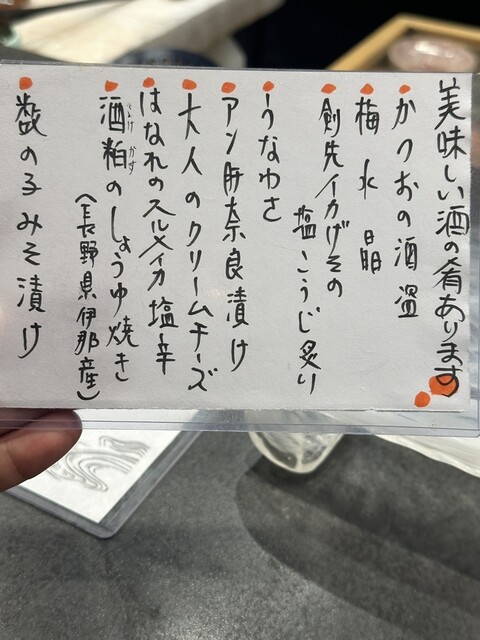 美味しい酒の肴あります
かつおの酒盗
梅水晶
剣先イカげその
塩こうじ炙り
うなわさ
アン肝奈良漬け
大人のクリームチーズ
はなれのスルメイカ塩辛
酒粕のしょうゆ焼き
さけ かす
(長野県伊那産)
数の子みそ漬け